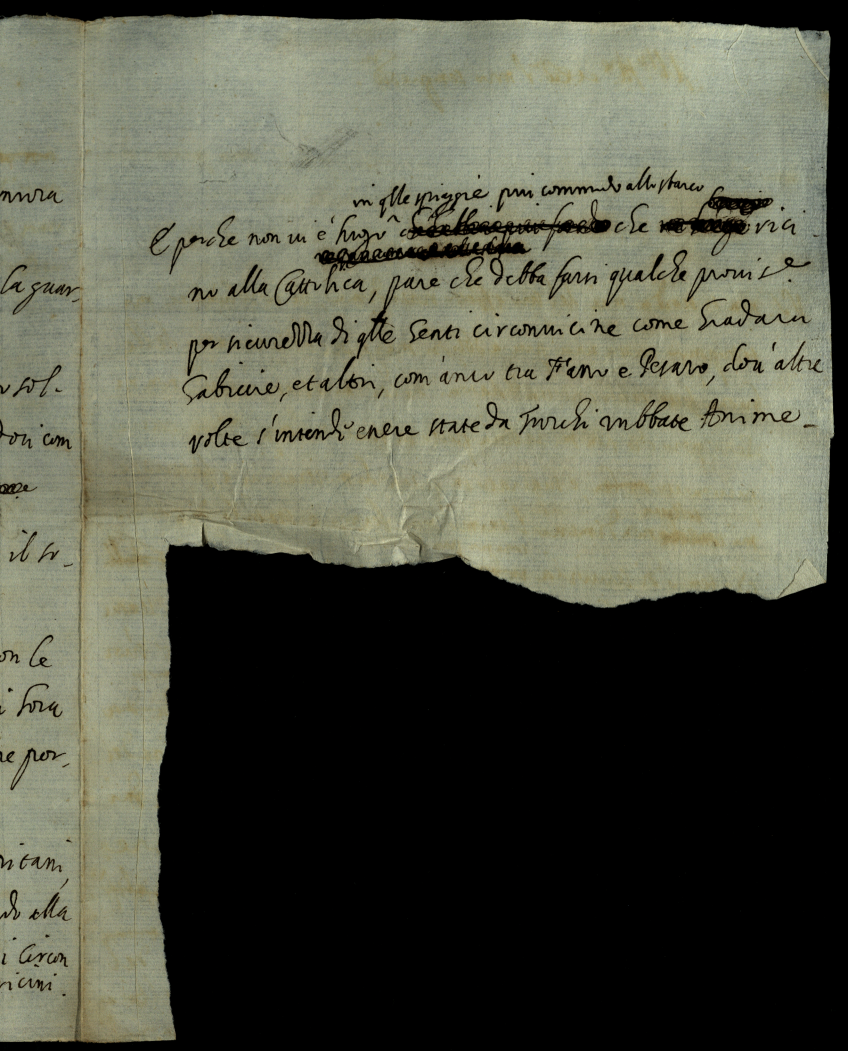 nnora
la guar-
sol-
doci com
il so-
on le
i Sora
re por,
ritani,
do alla
i Circon
vicini.
in qlle spiaggie piu commodo allo sbarco
E perche non ui è luogo che vici
no alla Cattolica, pare che debba farsi qualche provis.e
per sicurezza di qlle Genti circonuicine come Gradara
Gabicie, et altri, com'anco tra Fano e Pesaro, dou'altre
volte s'intende essere state da Turchi rubbate Anime-